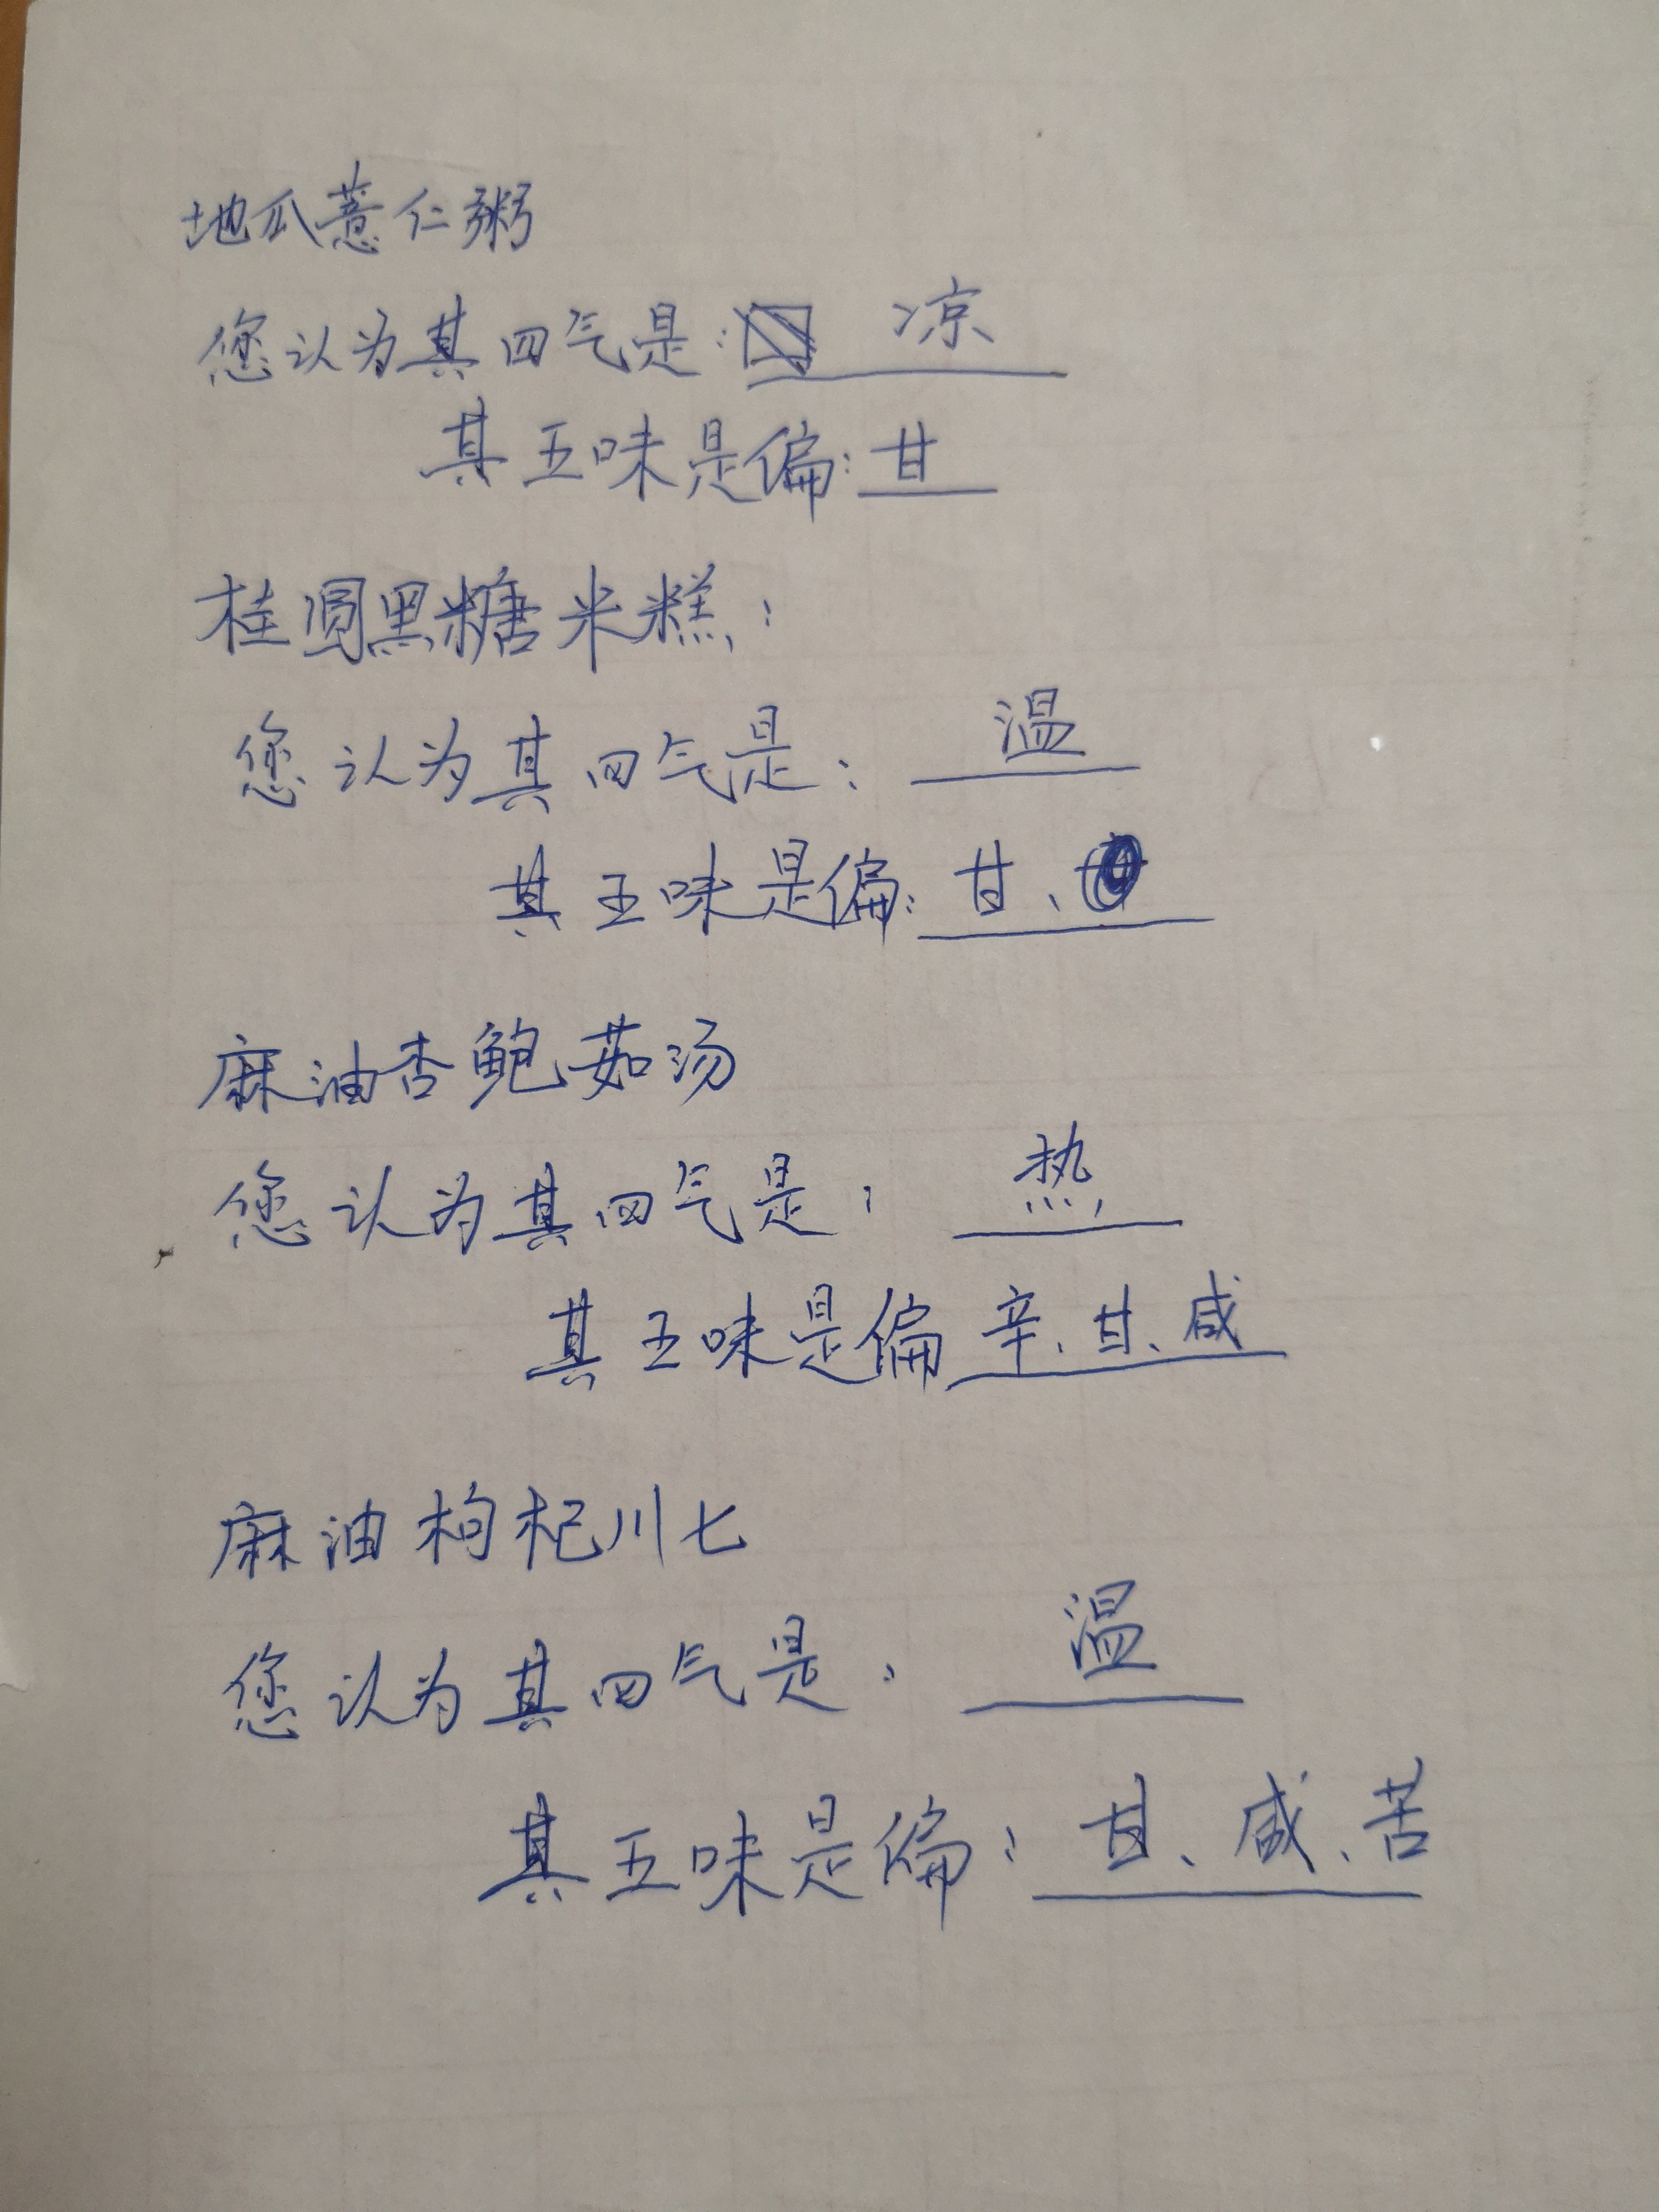 地瓜薏仁粥
您认为其四气是: 凉
其五味是偏: 甘
桂圆黑糖米糕:
您认为其四气是: 温
其五味是偏: 甘、
麻油杏鲍菇汤
您认为其四气是: 热
其五味是偏 辛、甘、咸
麻油枸杞川七
您认为其四气是: 温
其五味是偏: 甘、咸、苦